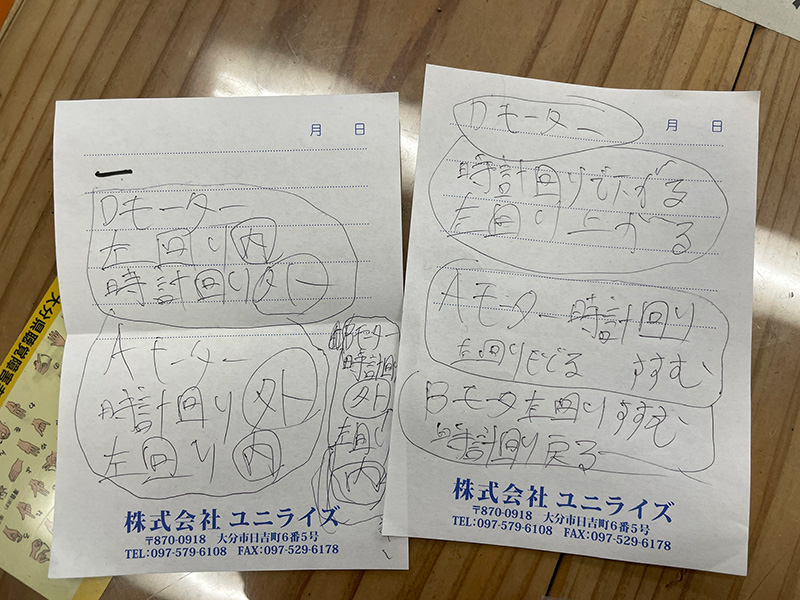 月 日
Dモーター
左回り内
時計回り外
Aモーター
時計回り外
左回り内
Bモーター
時計回
外
左回り
内
株式会社 ユニライズ
〒870-0918 大分市日吉町6番5号
TEL:097-579-6108 FAX:097-529-6178
月 日
Dモーター
時計回りで下がる
左回り 上がる
Aモーター 時計回り
左回りもどる すすむ
Bモータ左回りすすむ
時計回り戻る
株式会社 ユニライズ
〒870-0918 大分市日吉町6番5号
TEL:097-579-6108 FAX:097-529-6178
大分県聴覚障害